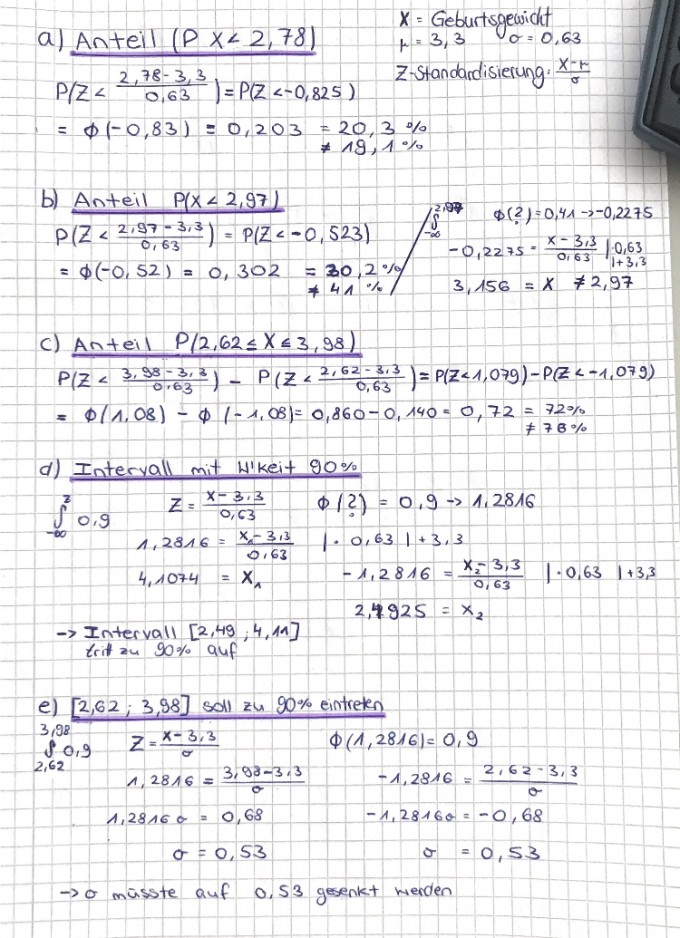 X = Geburtsgewicht
μ = 3,3 σ = 0,63
Z-Standardisierung: (X-μ)/σ
a) Anteil (P X < 2,78)
P(Z < (2,78-3,3)/0,63) = P(Z < -0,825)
= Φ(-0,83) = 0,203 = 20,3 %
≠ 19,1 %
b) Anteil P(X < 2,97)
P(Z < (2,97-3,3)/0,63) = P(Z < -0,523)
= Φ(-0,52) = 0,302 = 30,2 %
≠ 41 %
∫ -∞ 2,97 Φ(?) = 0,41 → -0,2275
-0,2275 = (X-3,3)/0,63 |·0,63
|+3,3
3,156 = X ≠ 2,97
c) Anteil P(2,62 ≤ X ≤ 3,98)
P(Z < (3,98-3,3)/0,63) - P(Z < (2,62-3,3)/0,63) = P(Z<1,079) - P(Z < -1,079)
= Φ(1,08) - Φ(-1,08) = 0,860 - 0,140 = 0,72 = 72%
≠ 78%
d) Intervall mit W'keit 90%
∫ -∞ z 0,9 Z = (X-3,3)/0,63 Φ(?) = 0,9 → 1,2816
1,2816 = (X₁-3,3)/0,63 |· 0,63 |+3,3
4,1074 = X₁ -1,2816 = (X₂-3,3)/0,63 |·0,63 |+3,3
2,4925 = X₂
→ Intervall [2,49 ; 4,11]
tritt zu 90% auf
e) [2,62 ; 3,98] soll zu 90% eintreten
∫ 2,62 3,98 0,9 Z = (X-3,3)/σ Φ(1,2816) = 0,9
1,2816 = (3,98-3,3)/σ -1,2816 = (2,62-3,3)/σ
1,2816σ = 0,68 -1,2816σ = -0,68
σ = 0,53 σ = 0,53
→ σ müsste auf 0,53 gesenkt werden